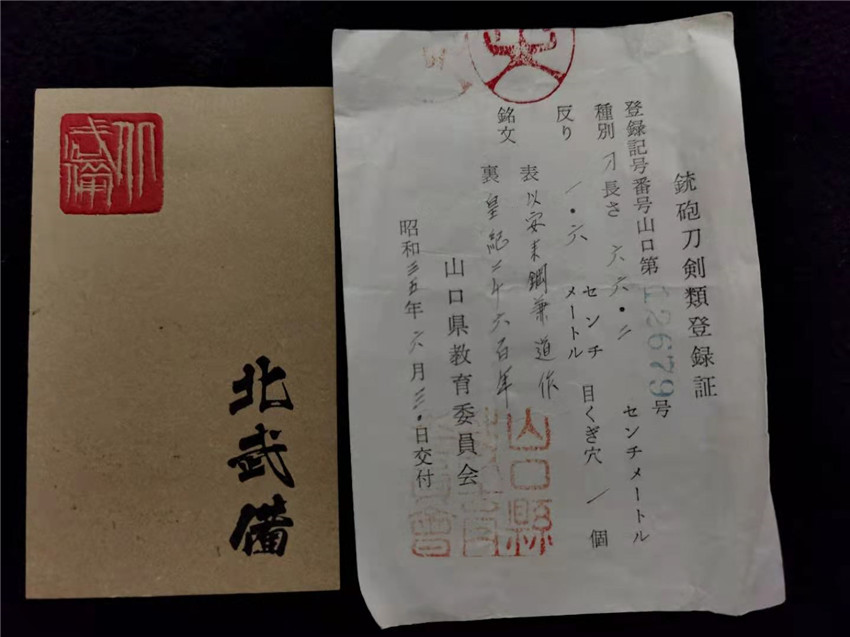 北武備
北武備
銃砲刀剣類登録証
登録記号番号山口第12679号
種別 刀 長さ 六六・二 センチメートル
反り 一・六 センチメートル 目くぎ穴 一 個
銘文 表 以安来鋼兼道作
裏 皇紀二千六百年
山口県教育委員会
昭和三五年六月三〇日交付
山口縣